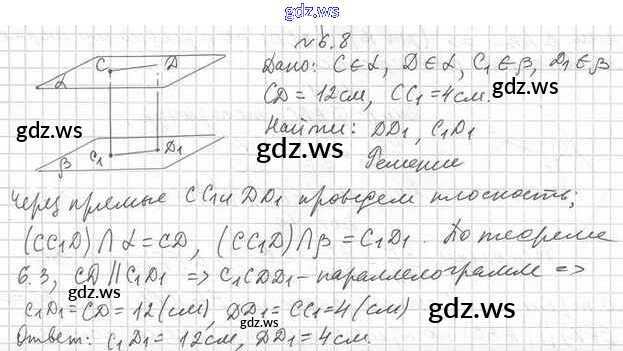 gdz.ws
№ 6.8
Дано: C∈α, D∈α, C₁∈β, D₁∈β
gdz.ws
CD = 12 см, CC₁ = 4 см.
gdz.ws
Найти: DD₁, C₁D₁
gdz.ws
Решение
C D
α
C₁ D₁
β
Через прямые CC₁ и DD₁ проведем плоскость;
gdz.ws
(CC₁D)∩α = CD, (CC₁D)∩β = C₁D₁. По теореме
6.3, CD ∥ C₁D₁ ⇒ C₁CDD₁ - параллелограмм ⇒
gdz.ws
C₁D₁ = CD = 12 (см), DD₁ = CC₁ = 4 (см)
gdz.ws
gdz.ws
Ответ: C₁D₁ = 12 см, DD₁ = 4 см.